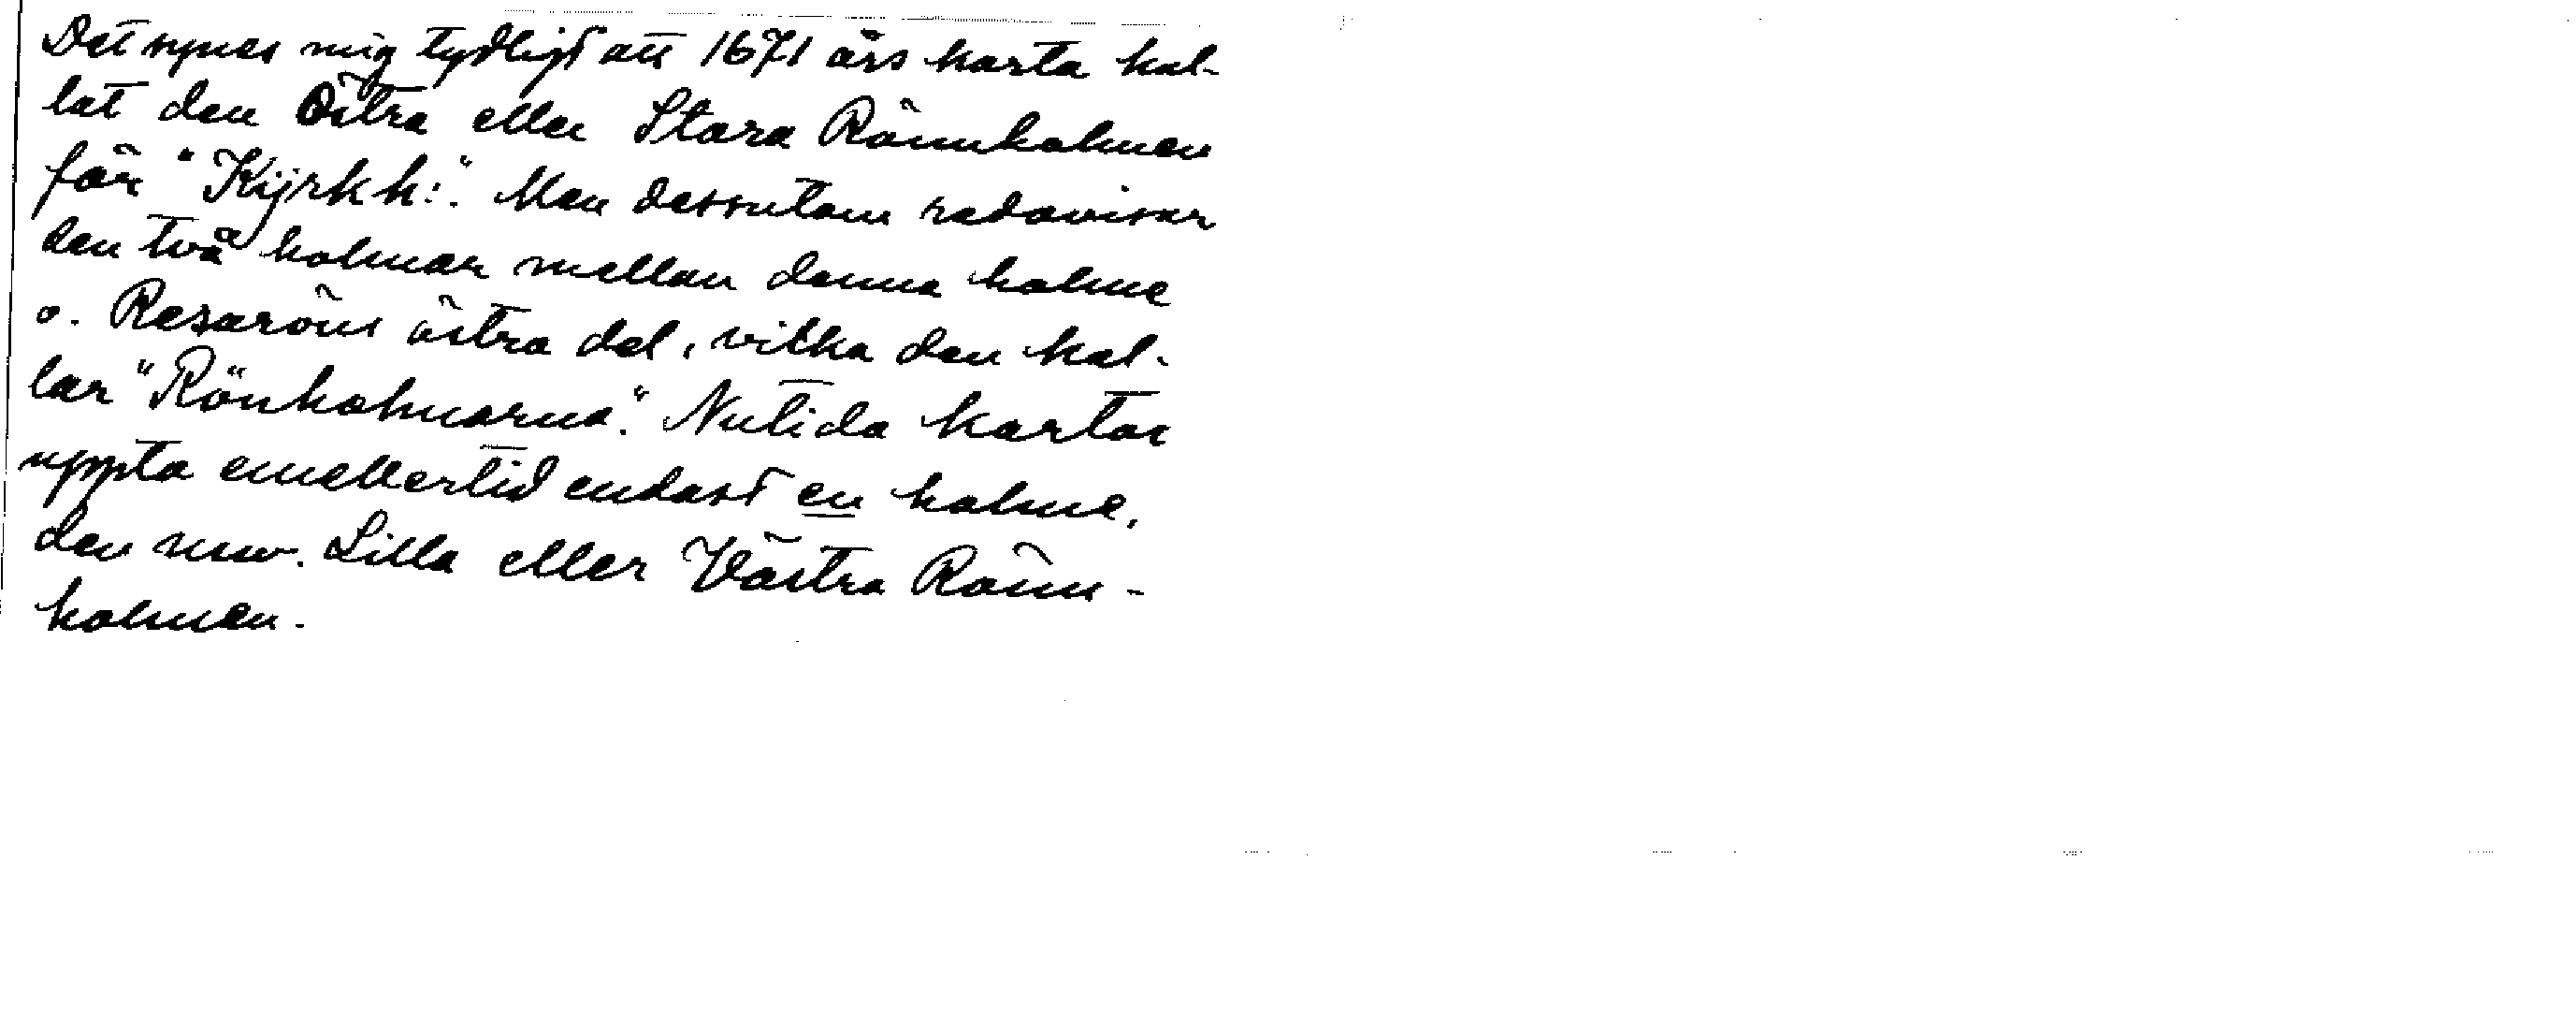 Det synes mig tydligt att 1671 års karta kal-
lat den Östra eller Stora Rönnholmen
för "Kijrkh:". Men dessutom redovisar
den två holmar mellan denna holme
o. Resaröns östra del, vilka den kal-
lar "Rönholmarna". Nutida kartor
uppta emellertid endast en holme,
den nuv. Lilla eller Västra Rönn-
holmen.